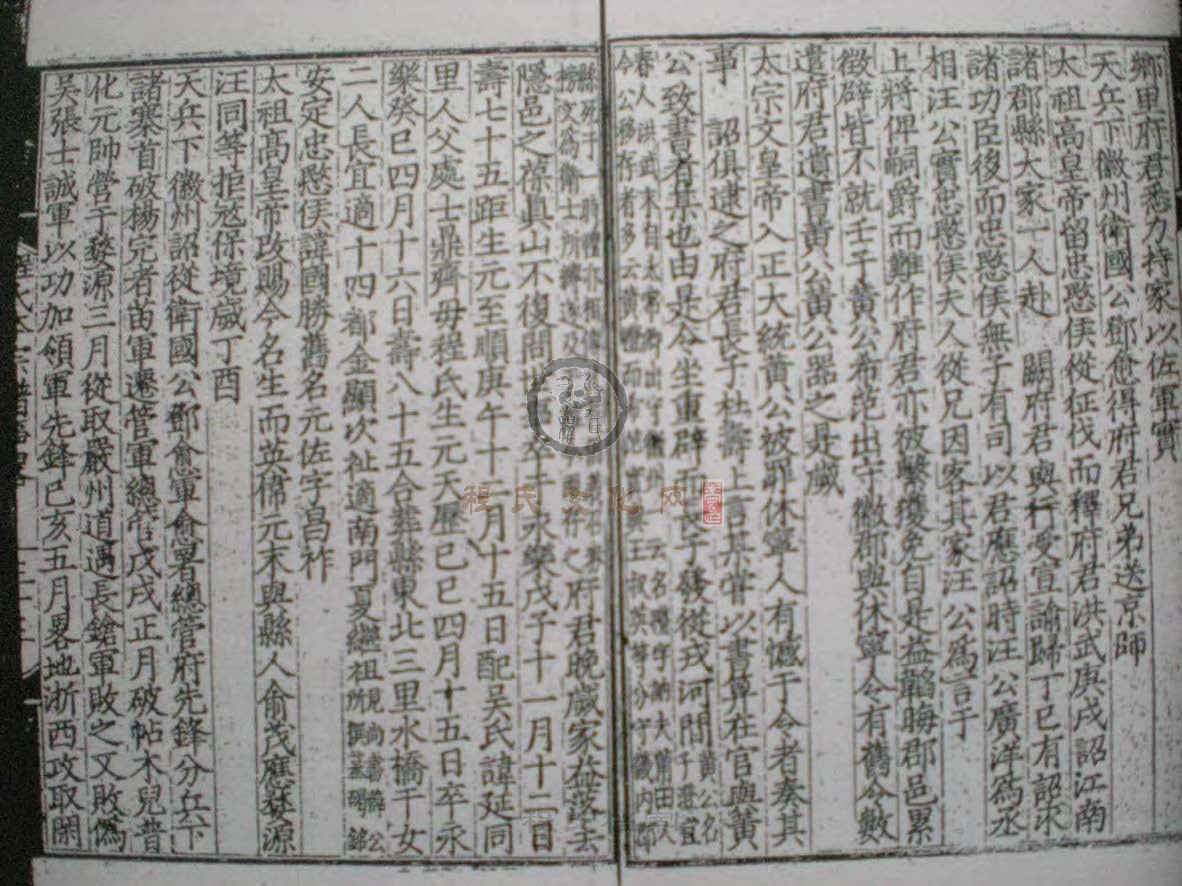 鄉里府君悉力持家以佐軍實
天兵下徽州衛國公鄧愈得府君兄弟送京師
太祖高皇帝留忠愍侯從征伐而釋府君洪武庚戌詔江南
諸郡縣大家一人赴 闕府君與行受宣諭歸丁巳有詔求
諸功臣後而忠愍侯無子有司以君應詔時汪公廣洋為丞
相汪公實忠愍侯夫人從兄因客其家汪公為言于
上將俾嗣爵而難作府君亦被繫獲免自是益韜晦郡邑累
徵辟皆不就壬子黃公希范出守徽郡與休寧令有舊令數
遣府君遺書黃公黃公器之是歲
太宗文皇帝入正大統黃公被罪休寧人有憾于令者奏其
事 詔俱逮之府君長子社壽上言某嘗以書算在官與黃
公致書者某也由是令坐重辟而長子發從戎河間
隱邑之葆真山不復問世 永樂戊子十一月十二日
壽七十五距生元至順庚午十二月十五日配吳氏諱延同
里人父處士鼎齊母程氏生元天曆己巳四月十五日卒永
樂癸巳四月十六日壽八十五合葬縣東北三里水橋干女
二人長宜適十四都金顯次祉適南門夏繼祖
安定忠愍侯諱國勝舊名元佐字昌祚
太祖高皇帝改賜今名生而英偉元末與縣人俞茂應婺源
汪同等拒寇保境歲丁酉
天兵下徽州詔從衛國公鄧愈軍愈署總管府先鋒分兵下
諸寨首破楊完者苗軍遷管軍總管戊戌正月破帖木兒普
化元帥營于婺源三月從取嚴州道遇長鎗軍敗之又敗偽
吳張士誠軍以功加領軍先鋒己亥五月畧地浙西攻取閑
程氏文化网